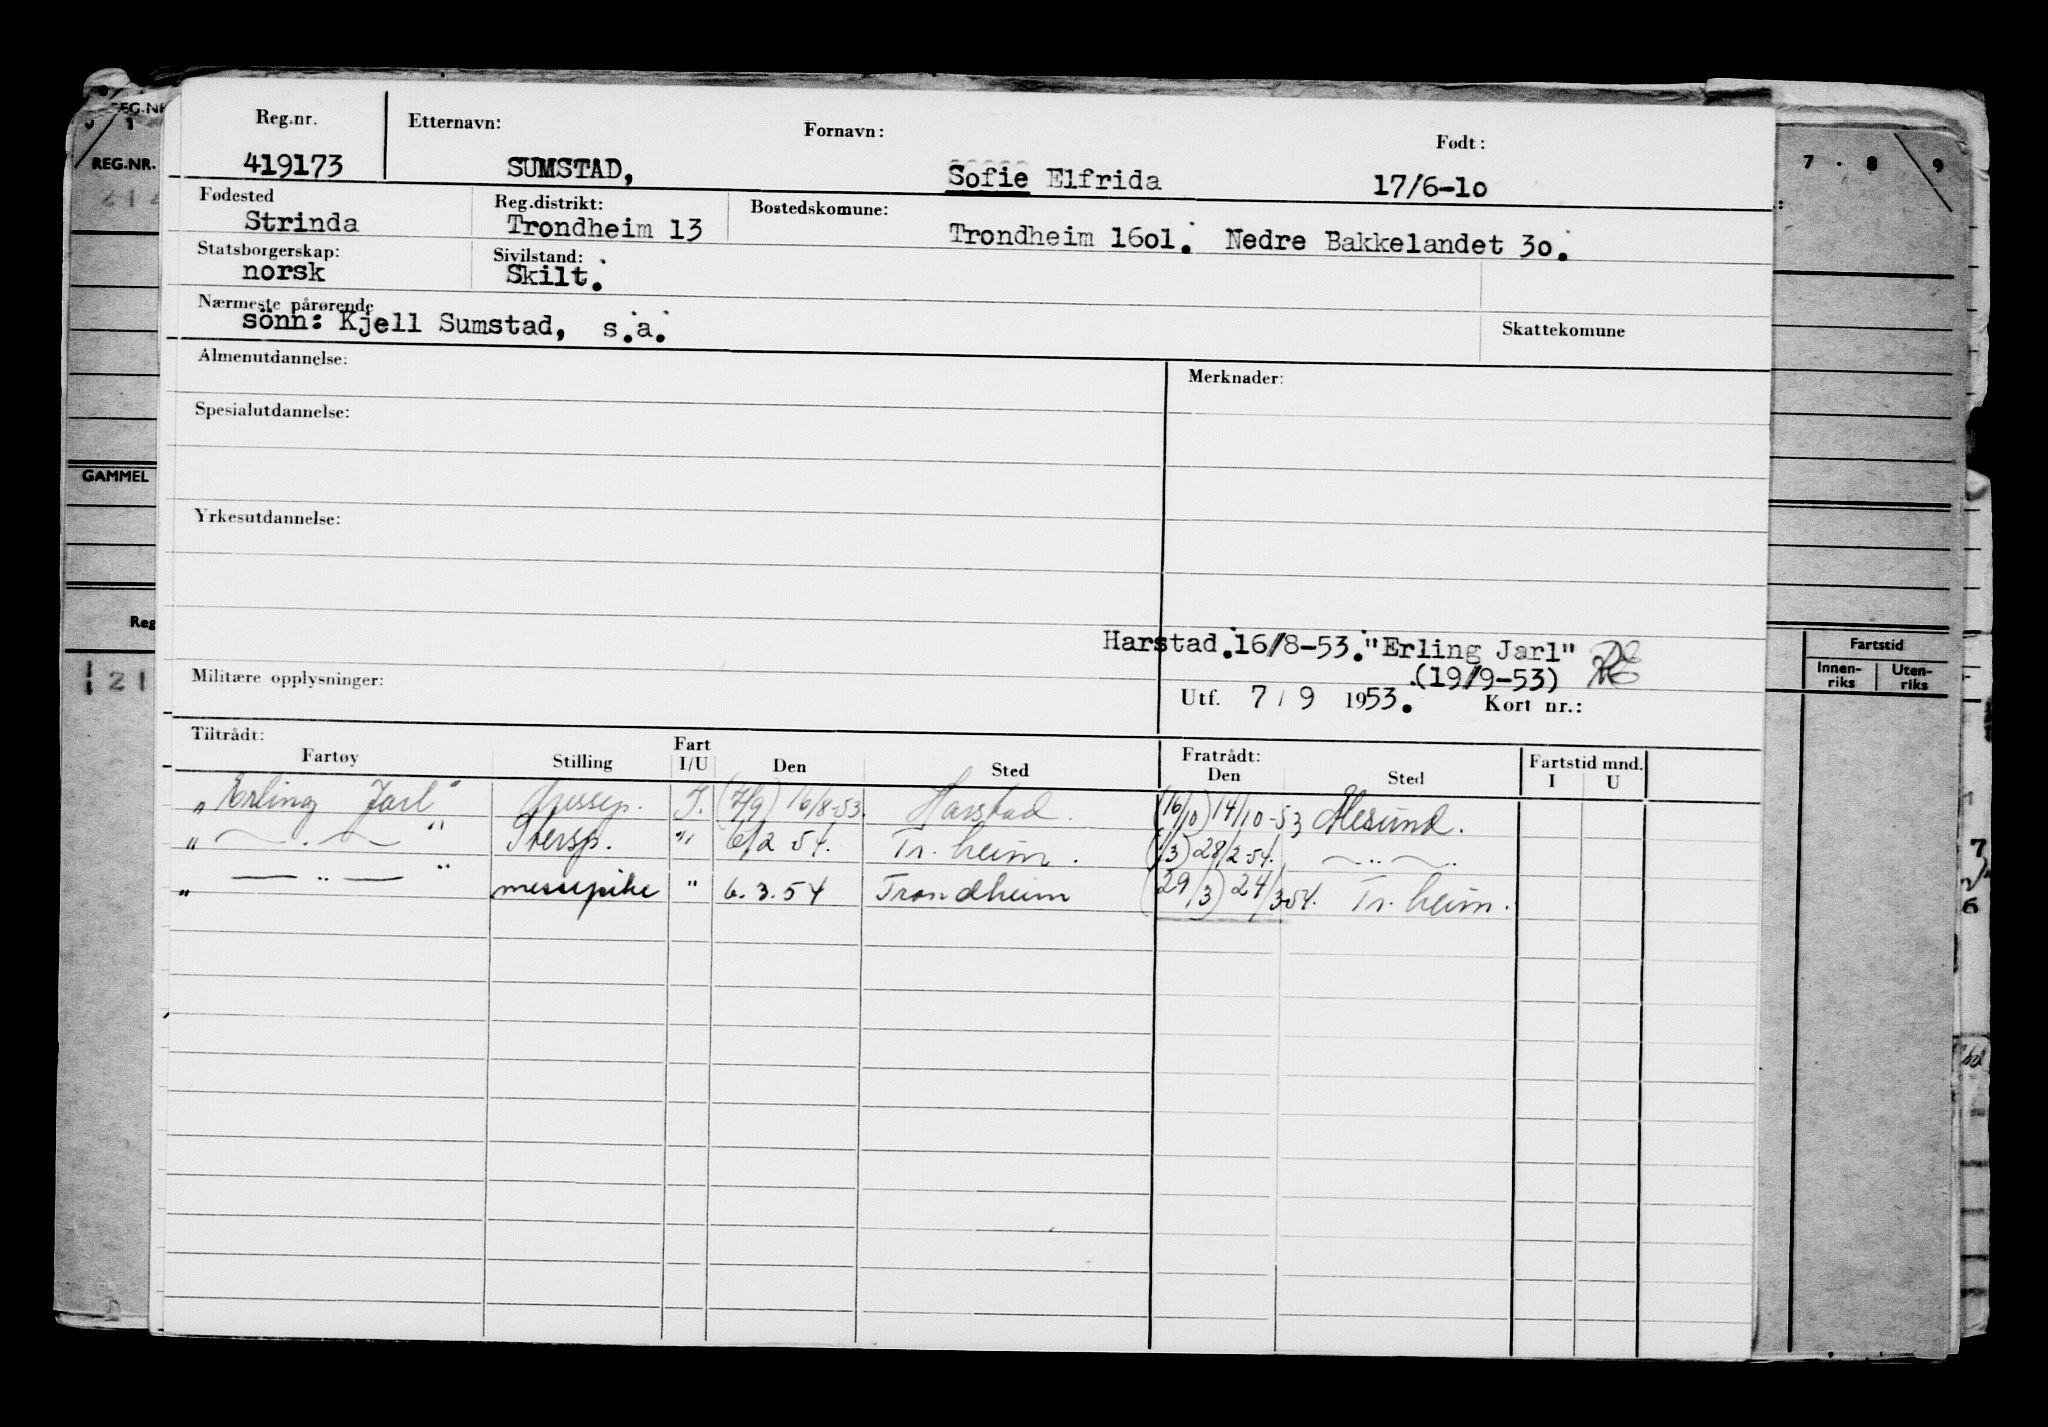 Reg.nr. Etternavn: Fornavn: Født:
419173 SUMSTAD, Sofie Elfrida 17/6-10
Fødested Reg.distrikt: Bostedskomune:
Strinda Trondheim 13 Trondheim 16o1. Nedre Bakkelandet 3o.
Statsborgerskap: Sivilstand:
norsk Skilt.
Nærmeste pårørende Skattekomune
sönn: Kjell Sumstad, s.a.
Almenutdannelse: Merknader:
Spesialutdannelse:
Yrkesutdannelse:
Harstad.16/8-53."Erling Jarl"
.(19/9-53)
Militære opplysninger: Utf. 7 / 9 1953. Kort nr.:
Tiltrådt: Fratrådt:
Fartøy Stilling Fart I/U Den Sted Den Sted Fartstid mnd. I U
„Erling Jarl" I. (7/9) 16/8-53. Harstad. (16/10) 14/10-53 Ålesund.
„ — . — " " 6/2 54. Tr.heim. 28/2 54. — " —.
„ — " — " messepike " 6.3.54 Trondheim (29/3) 24/3-54. Tr.heim.
REG.NR.
REG.NR.
GAMMEL
Reg
21
7 . 8 9
Fartstid
Innen-riks Uten-riks
7
6